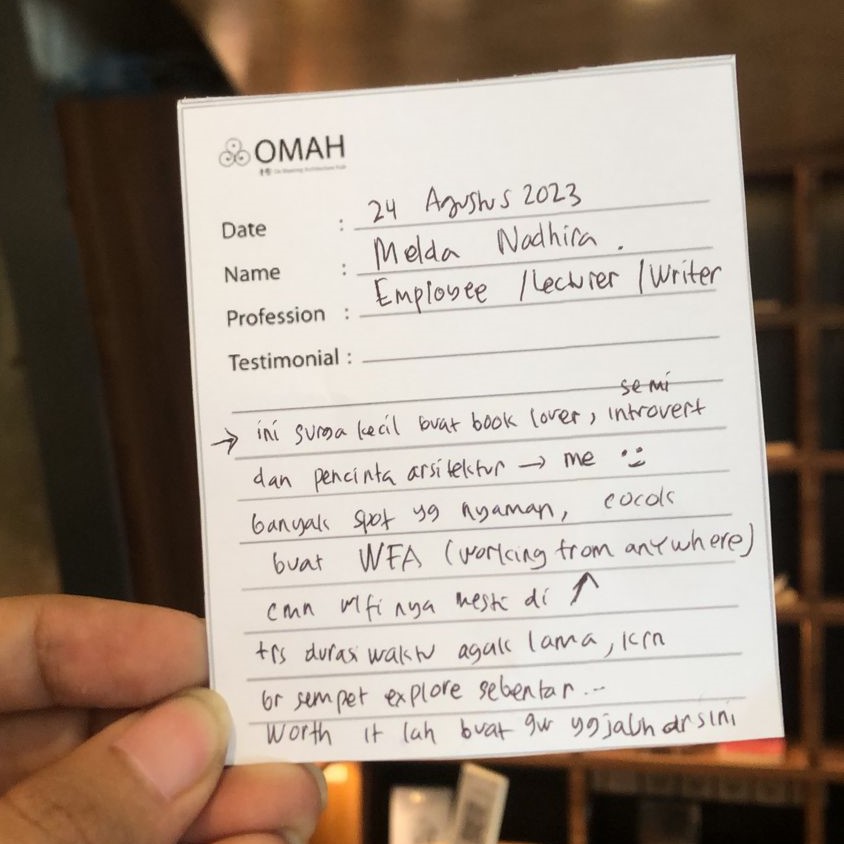 OMAH
Date : 24 Agustus 2023
Name : Melda Nadhira .
Profession : Employee / Lecturer / Writer
Testimonial :
semi
→ ini surga kecil buat book lover, introvert
dan pencinta arsitektur → me :)
banyak spot yg nyaman, cocok
buat WFA (working from anywhere)
cmn wifi nya mesti di ↑
trs durasi waktu agak lama, krn
br sempet explore sebentar...
worth it lah buat gw yg jauh dr sini